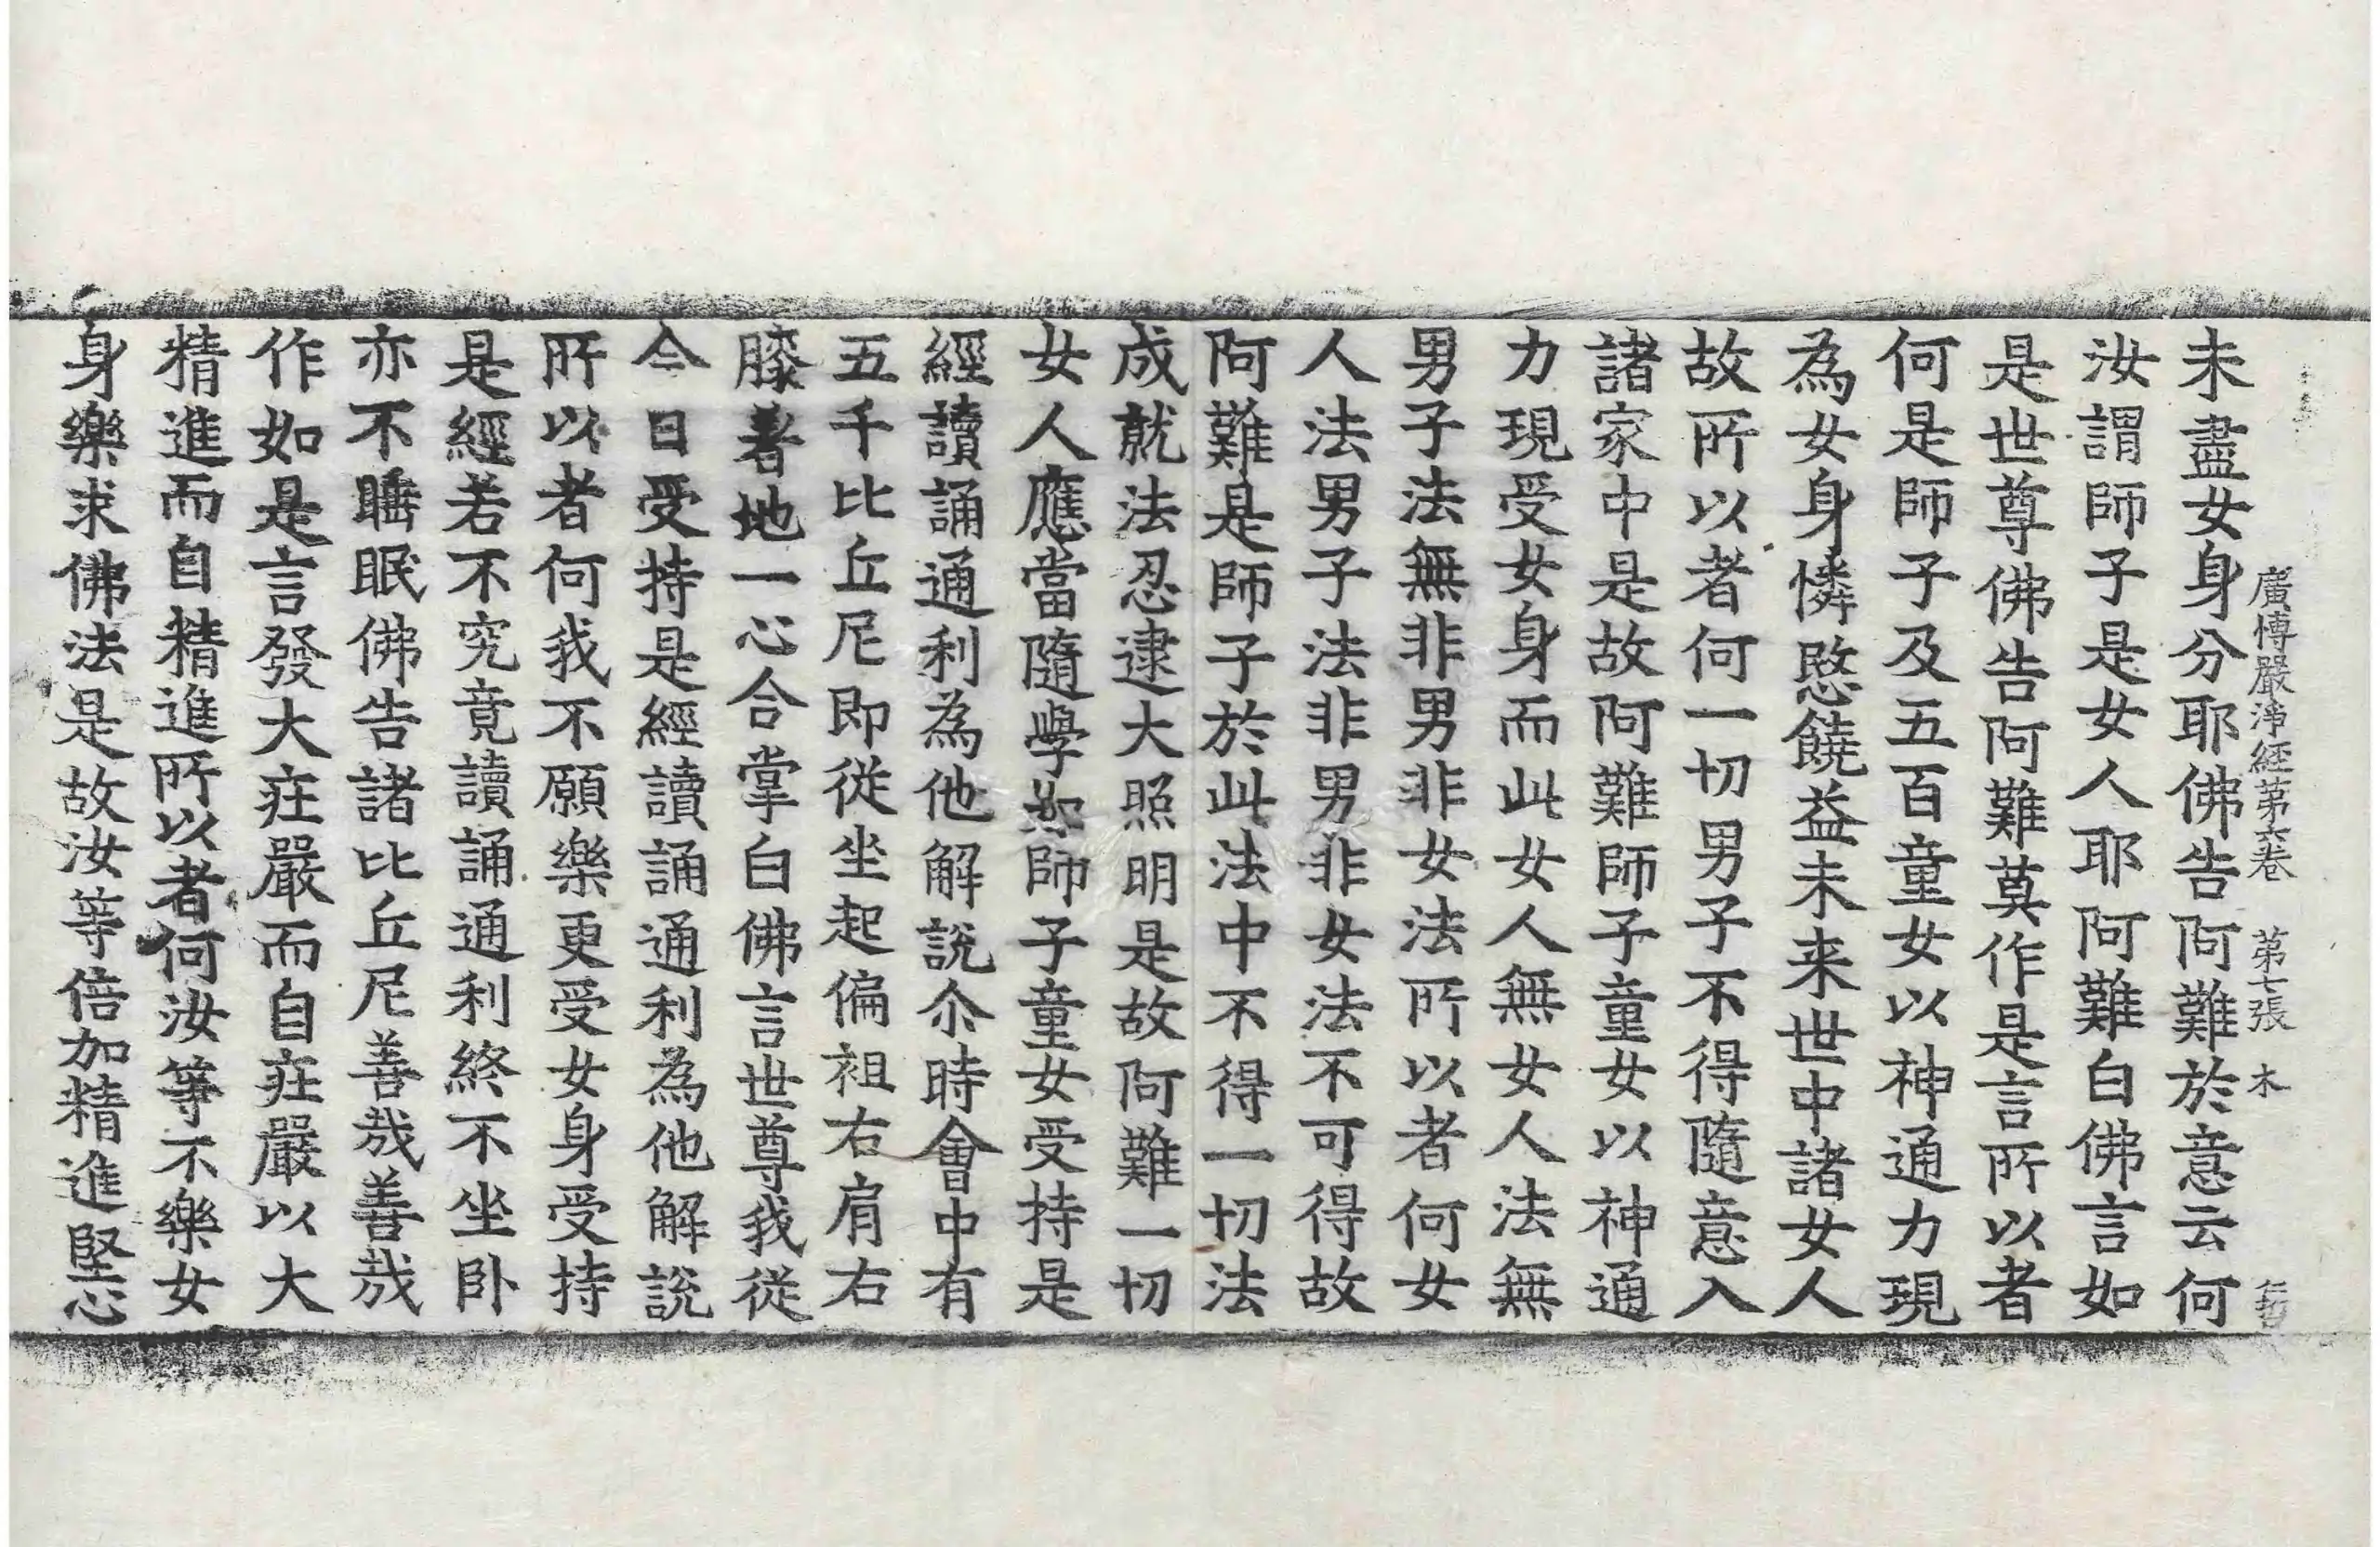 廣博嚴淨經第六卷 第七張 木
未盡女身分耶佛告阿難於意云何
汝謂師子是女人耶阿難白佛言如
是世尊佛告阿難莫作是言所以者
何是師子及五百童女以神通力現
為女身憐愍饒益未来世中諸女人
故所以者何一切男子不得隨意入
諸家中是故阿難師子童女以神通
力現受女身而此女人無女人法無
男子法無非男非女法所以者何女
人法男子法非男非女法不可得故
阿難是師子於此法中不得一切法
成就法忍逮大照明是故阿難一切
女人應當隨學如師子童女受持是
經讀誦通利為他解說尒時會中有
五千比丘尼即從坐起偏袒右肩右
膝著地一心合掌白佛言世尊我從
今日受持是經讀誦通利為他解說
所以者何我不願樂更受女身受持
是經若不究竟讀誦通利終不坐卧
亦不睡眠佛告諸比丘尼善哉善哉
作如是言發大莊嚴而自莊嚴以大
精進而自精進所以者何汝等不樂女
身樂求佛法是故汝等倍加精進堅心